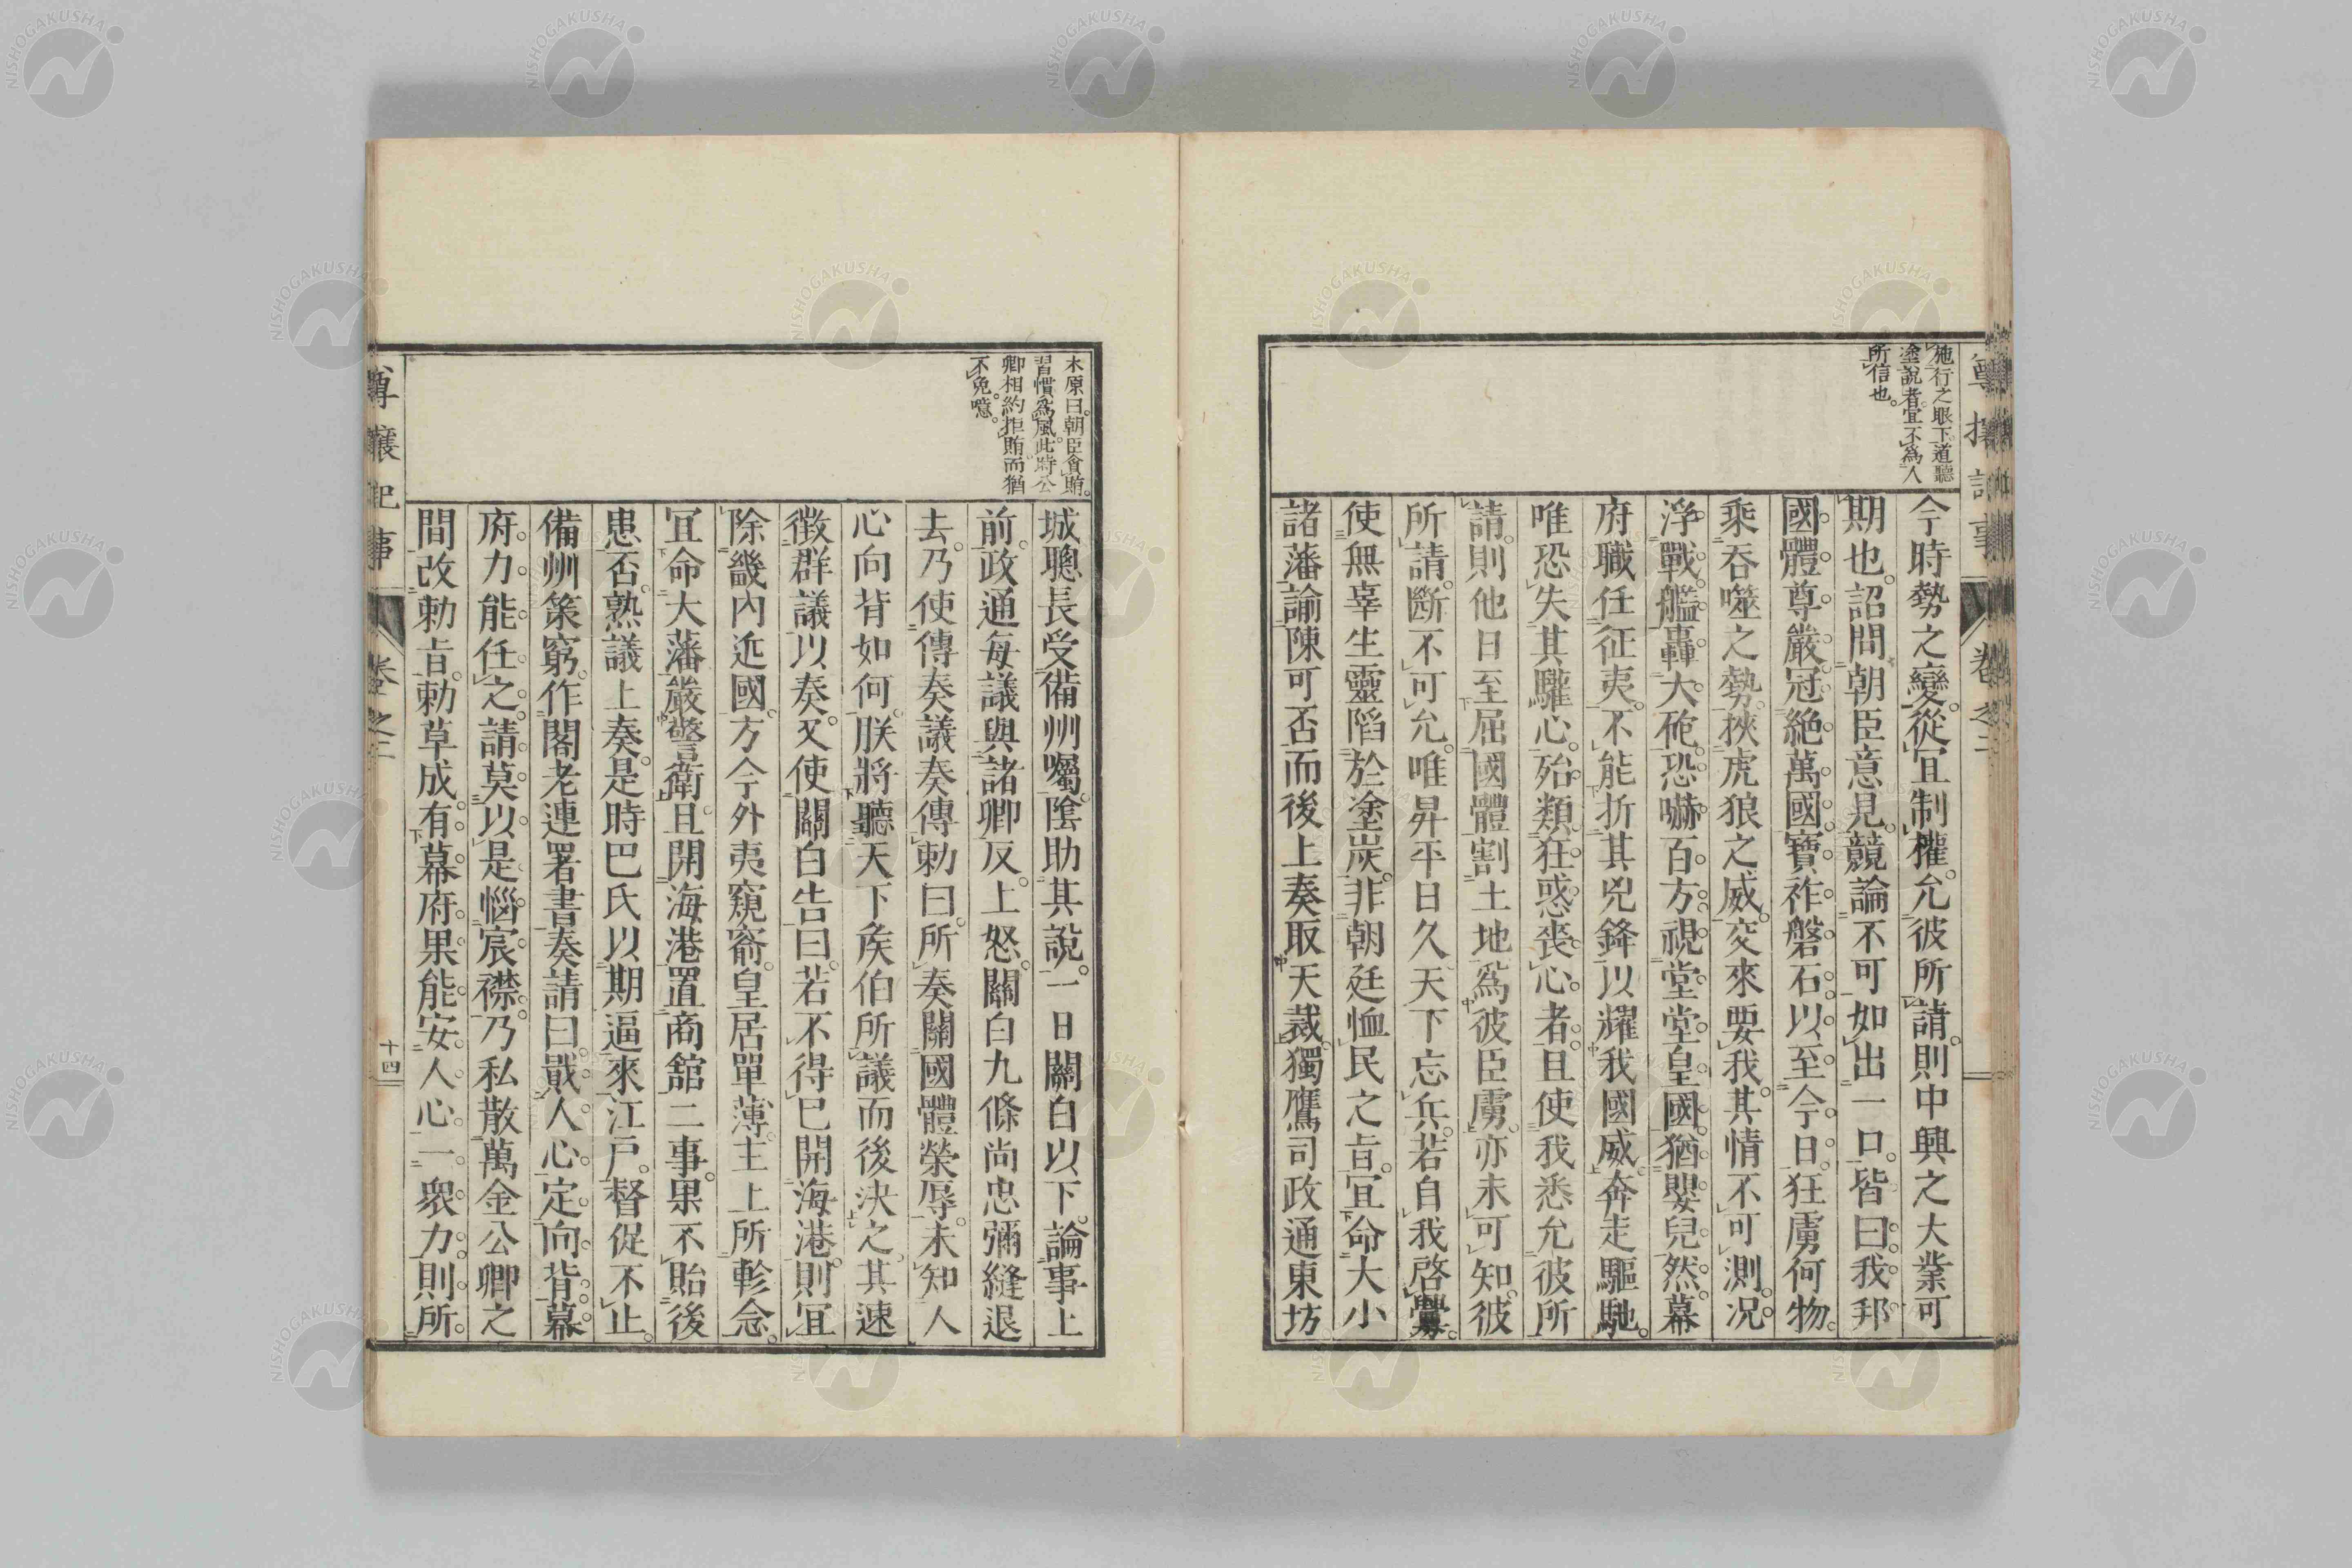 施行之眼下。道聽
塗說者。宜不爲人
所信也。
今時勢之變。從宜制權。允彼所請。則中興之大業可
期也。詔問朝臣意見。競論不可。如出一口。皆曰。我邦
國體尊嚴。冠絶萬國。寶祚磐石。以至今日。狂虜何物。
乘吞噬之勢。挾虎狼之威。交來要我。其情不可測。况
浮戰艦。轟大砲。恐嚇百方。視堂堂皇國。猶嬰兒然。幕
府職任征夷。不能折其兇鋒以耀我國威。奔走驅馳。
唯恐失其驩心。殆類狂惑喪心者。且使我悉允彼所
請。則他日至屈國體割土地爲彼臣虜。亦未可知。彼
所請。斷不可允。唯昇平日久。天下忘兵。若自我啓釁。
使無辜生靈陷於塗炭。非朝廷恤民之旨。宜命大小
諸藩諭陳可否而後上奏取天裁。獨鷹司政通東坊
尊攘記事
卷之二
木原曰。朝臣貪賄。
習慣爲風。此時公
卿相約拒賄。而猶
不免。噫。
城聰長受備州囑。陰助其說。一日關白以下。論事上
前。政通每議與諸卿反。上怒。關白九條尚忠彌縫退
去。乃使傳奏議奏傳勅曰。所奏關國體榮辱。未知人
心向背如何。朕將聽天下侯伯所議而後決之。其速
徵群議以奏。又使關白告曰。若不得已開海港。則宜
除畿內近國。方今外夷窺窬。皇居單薄。主上所軫念。
宜命大藩嚴警衛。且開海港置商舘二事。果不貽後
患否。熟議上奏。是時巴氏以期逼來江戶。督促不止。
備州策窮。作閣老連署書奏請曰。戢人心。定向背。幕
府力能任之。請莫以是惱宸襟。乃私散萬金公卿之
間改勅旨。勅草成。有幕府果能安人心。一衆力。則所
尊攘記事
卷之二
十四